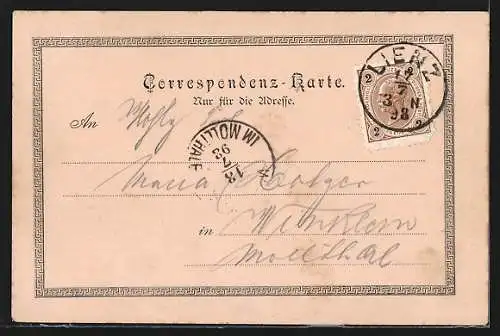 LIENZ
18
7
3 N
98
2 2
2 2
Correspondenz-Karte.
Nur für die Adresse.
An
IM MÖLLTHALE
18
7
98
Maria Holzer
in Winklern
Möllthal